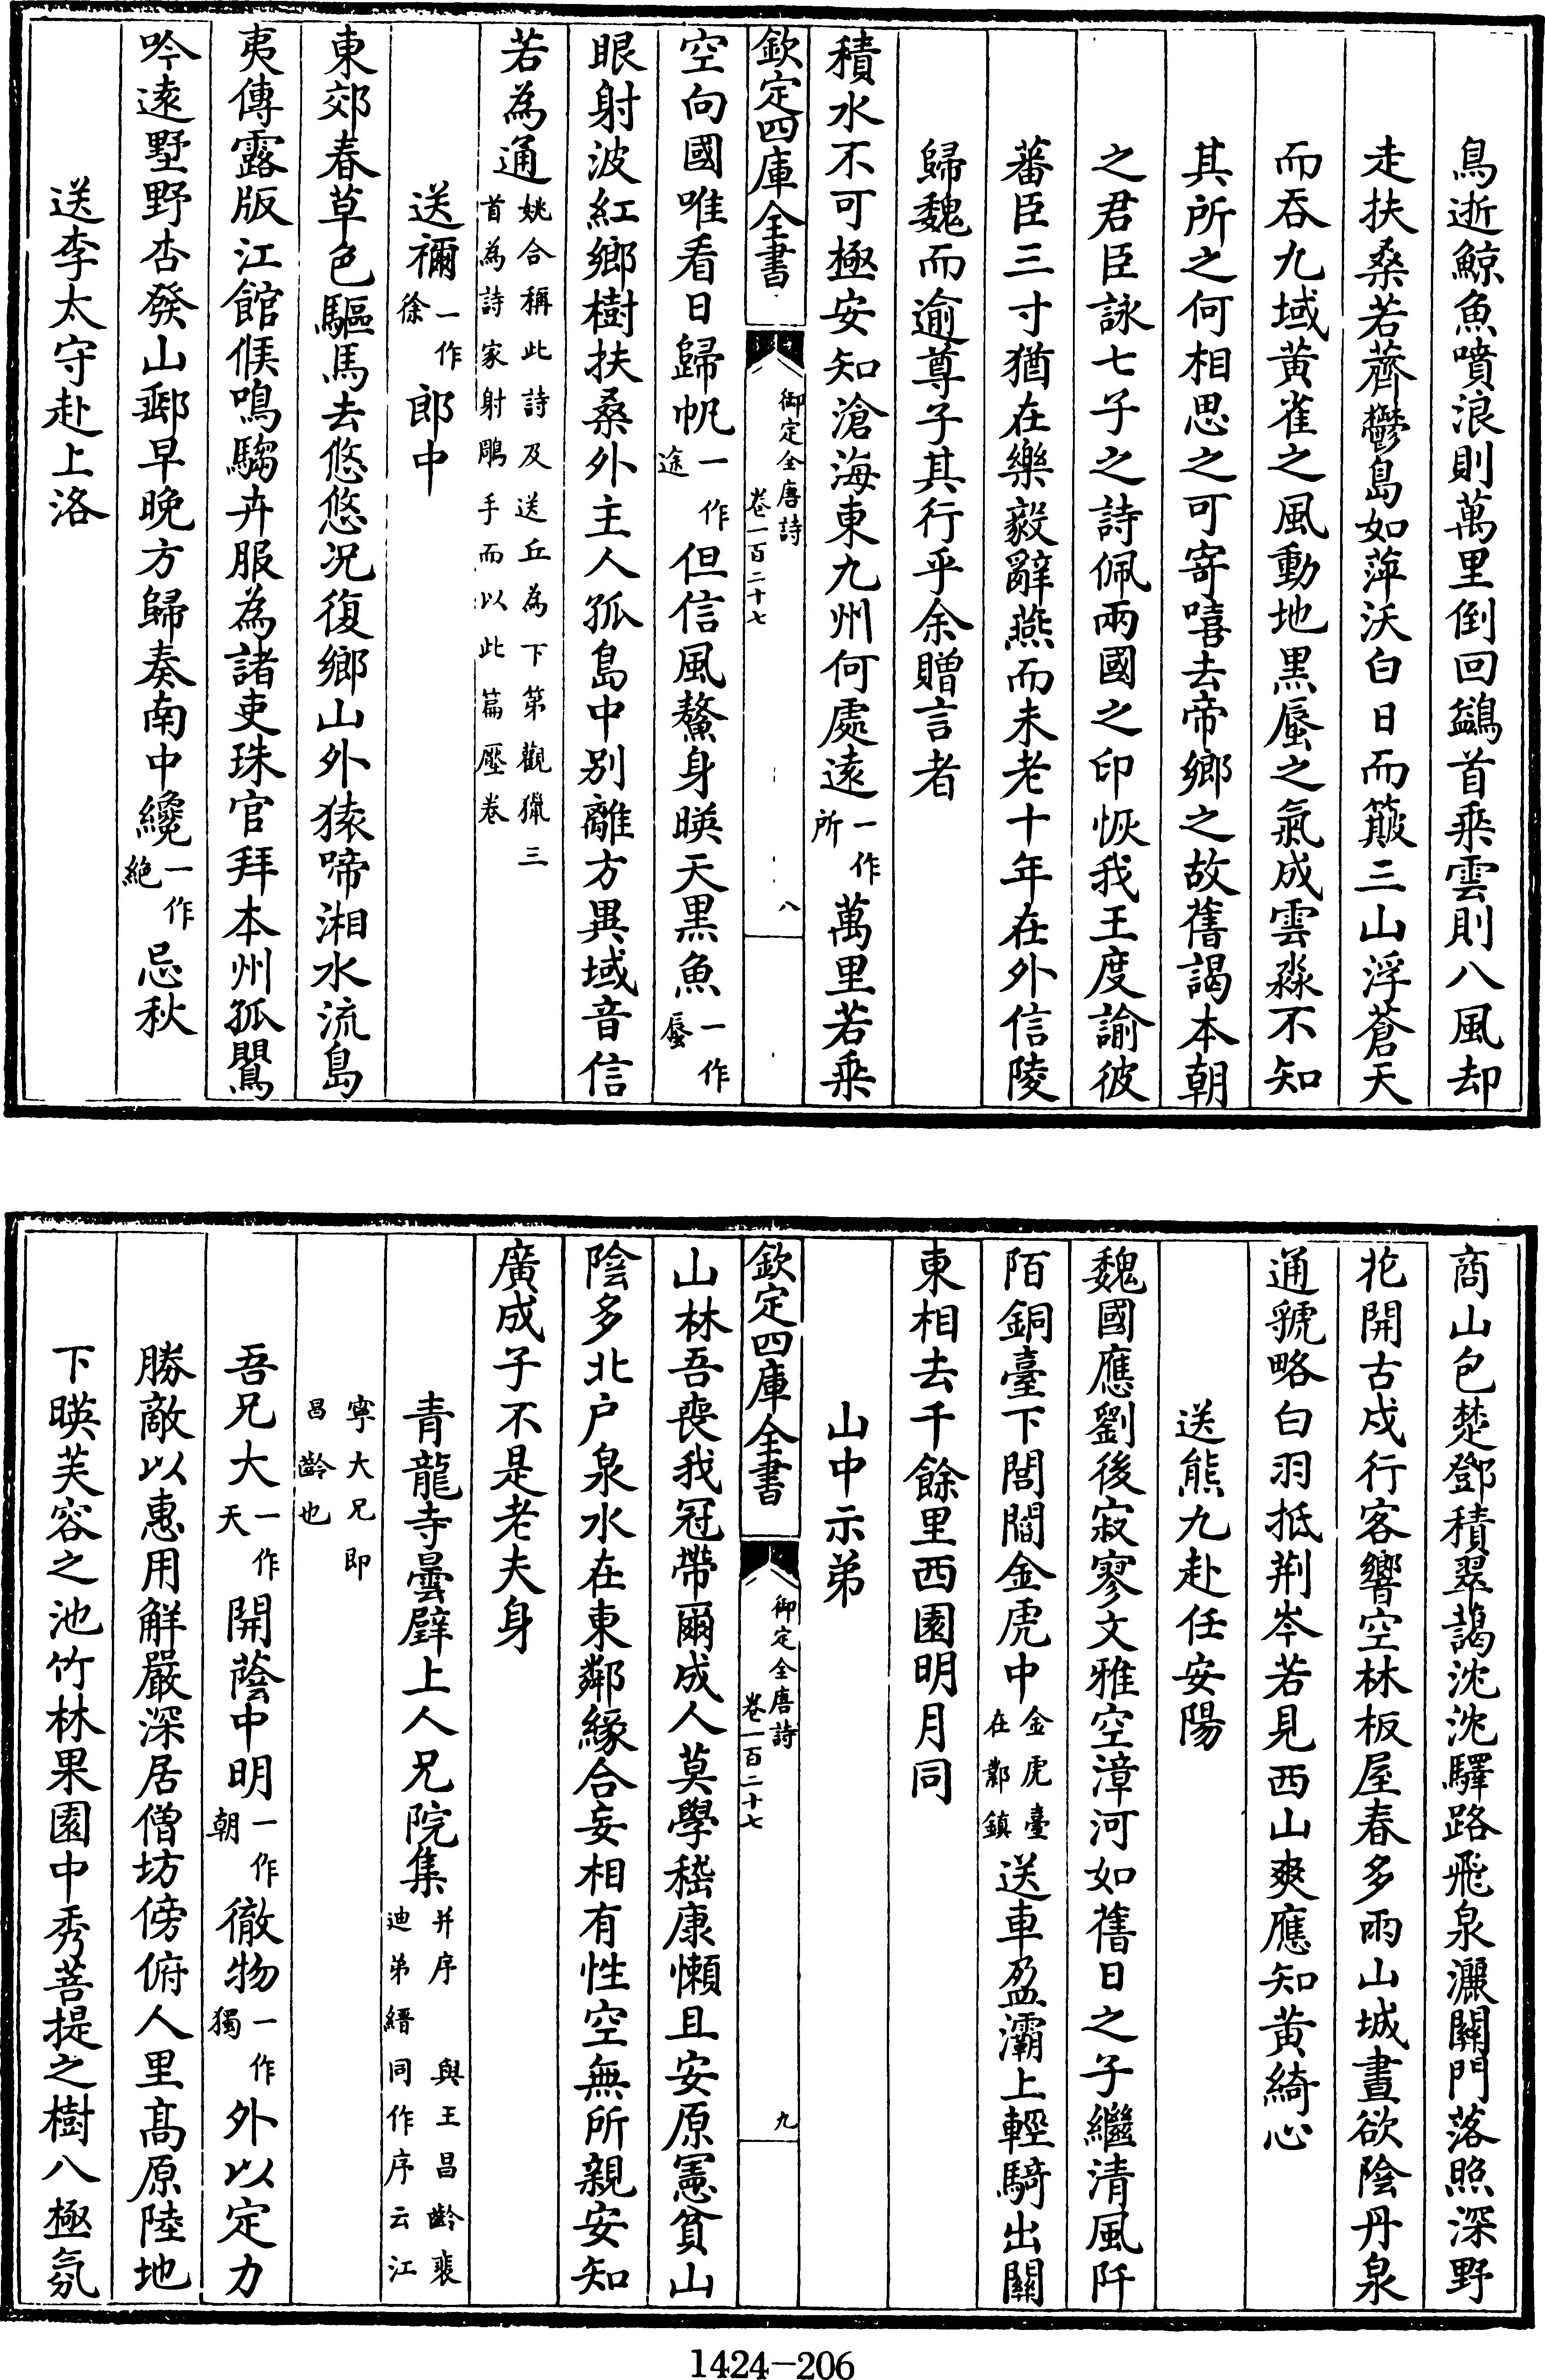 鳥逝鯨魚噴浪則萬里倒回鷁首乘雲則八風却
走扶桑若薺鬱島如萍沃白日而簸三山浮蒼天
而吞九域黄雀之風動地黒蜃之氣成雲淼不知
其所之何相思之可寄嘻去帝鄉之故舊謁本朝
之君臣詠七子之詩佩兩國之印恢我王度諭彼
蕃臣三寸猶在樂毅辭燕而未老十年在外信陵
歸魏而逾尊子其行乎余贈言者
積水不可極安知滄海東九州何處逺一作所萬里若乘
欽定四庫全書 御定全唐詩 卷一百二十七 八
空向國唯看日歸帆一作途但信風鰲身暎天黒魚一作蜃
眼射波紅鄉樹扶桑外主人孤島中别離方異域音信
若為通姚合稱此詩及送丘為下第觀獵三首為詩家射鵰手而以此篇壓卷
送禰一作徐郎中
東郊春草色驅馬去悠悠况復鄉山外猿啼湘水流島
夷傳露版江館候鳴騶卉服為諸吏珠官拜本州孤鶯
吟逺墅野杏發山郵早晚方歸奏南中纔一作絶忌秋
送李太守赴上洛
商山包楚鄧積翠藹沈沈驛路飛泉灑關門落照深野
花開古戍行客響空林板屋春多雨山城晝欲陰丹泉
通虢略白羽抵荆岑若見西山爽應知黄綺心
送熊九赴任安陽
魏國應劉後寂寥文雅空漳河如舊日之子繼清風阡
陌銅臺下閭閻金虎中金虎臺在鄴鎮送車盈灞上輕騎出關
東相去千餘里西園明月同
山中示弟
欽定四庫全書 御定全唐詩 卷一百二十七 九
山林吾喪我冠帶爾成人莫學嵇康懶且安原憲貧山
陰多北户泉水在東鄰緣合妄相有性空無所親安知
廣成子不是老夫身
青龍寺曇壁上人兄院集并序 與王昌齡裴迪弟縉同作序云江
寧大兄即昌齡也
吾兄大一作天開蔭中明一作朝徹物一作獨外以定力
勝敵以惠用解嚴深居僧坊傍俯人里髙原陸地
下暎芙容之池竹林果園中秀菩提之樹八極氛
1424-206